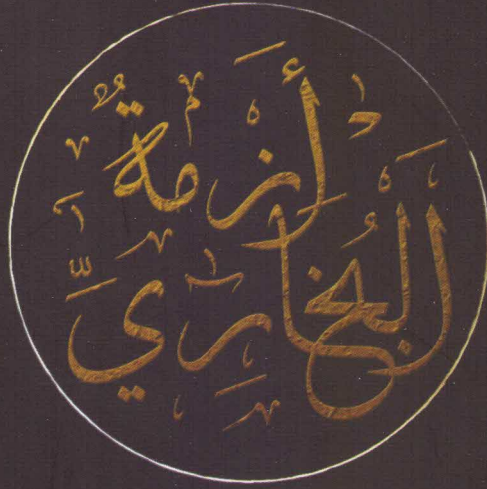 أزمة
البخاري